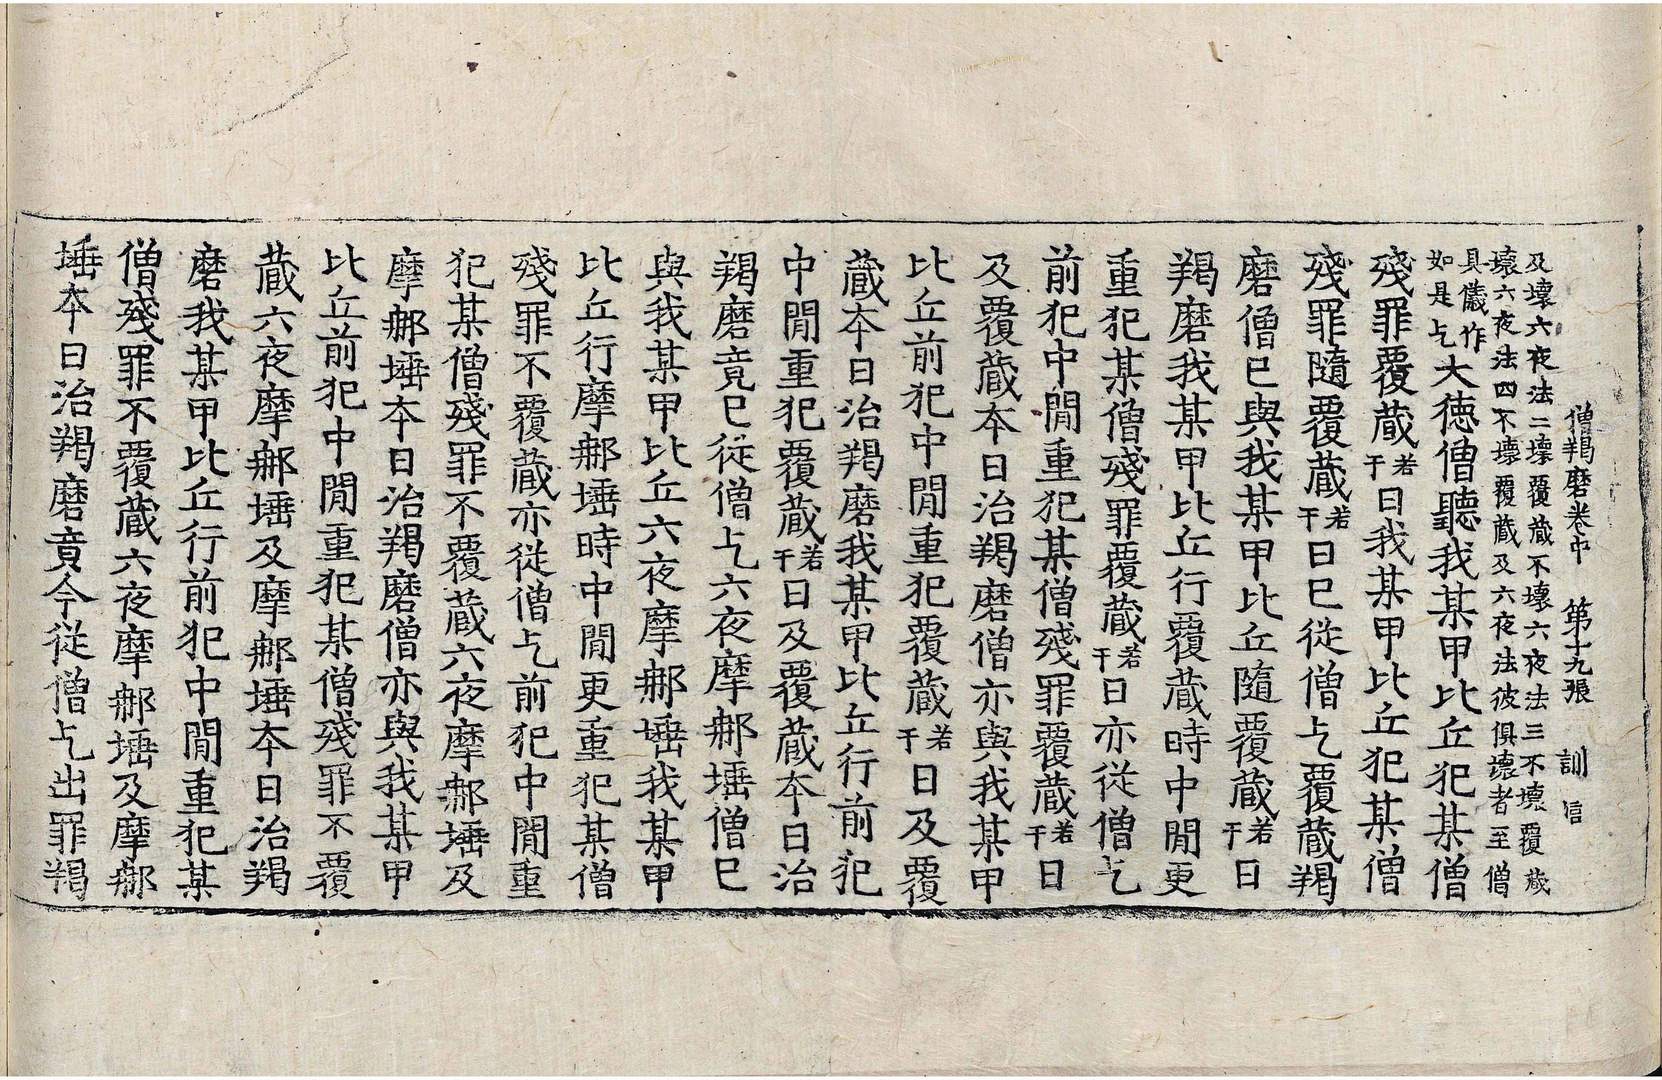 僧羯磨卷中 第十九張 訓 信
及壞六夜法二壞覆藏不壞六夜法三不壞覆藏
壞六夜法四不壞覆藏及六夜法彼俱壞者至僧
具儀作
如是乞大德僧聽我某甲比丘犯某僧
殘罪覆藏若干日我某甲比丘犯某僧
殘罪隨覆藏若干日已從僧乞覆藏羯
磨僧已與我某甲比丘隨覆藏若干日
羯磨我某甲比丘行覆藏時中閒更
重犯某僧殘罪覆藏若干日亦從僧乞
前犯中閒重犯某僧殘罪覆藏若干日
及覆藏夲日治羯磨僧亦與我某甲
比丘前犯中閒重犯覆藏若干日及覆
藏夲日治羯磨我某甲比丘行前犯
中閒重犯覆藏若干日及覆藏夲日治
羯磨竟已從僧乞六夜摩那埵僧已
與我某甲比丘六夜摩那埵我某甲
比丘行摩那埵時中閒更重犯某僧
殘罪不覆藏亦從僧乞前犯中閒重
犯某僧殘罪不覆藏六夜摩那埵及
摩那埵夲日治羯磨僧亦與我某甲
比丘前犯中閒重犯某僧殘罪不覆
藏六夜摩那埵及摩那埵夲日治羯
磨我某甲比丘行前犯中閒重犯某
僧殘罪不覆藏六夜摩那埵及摩那
埵夲日治羯磨竟今從僧乞出罪羯